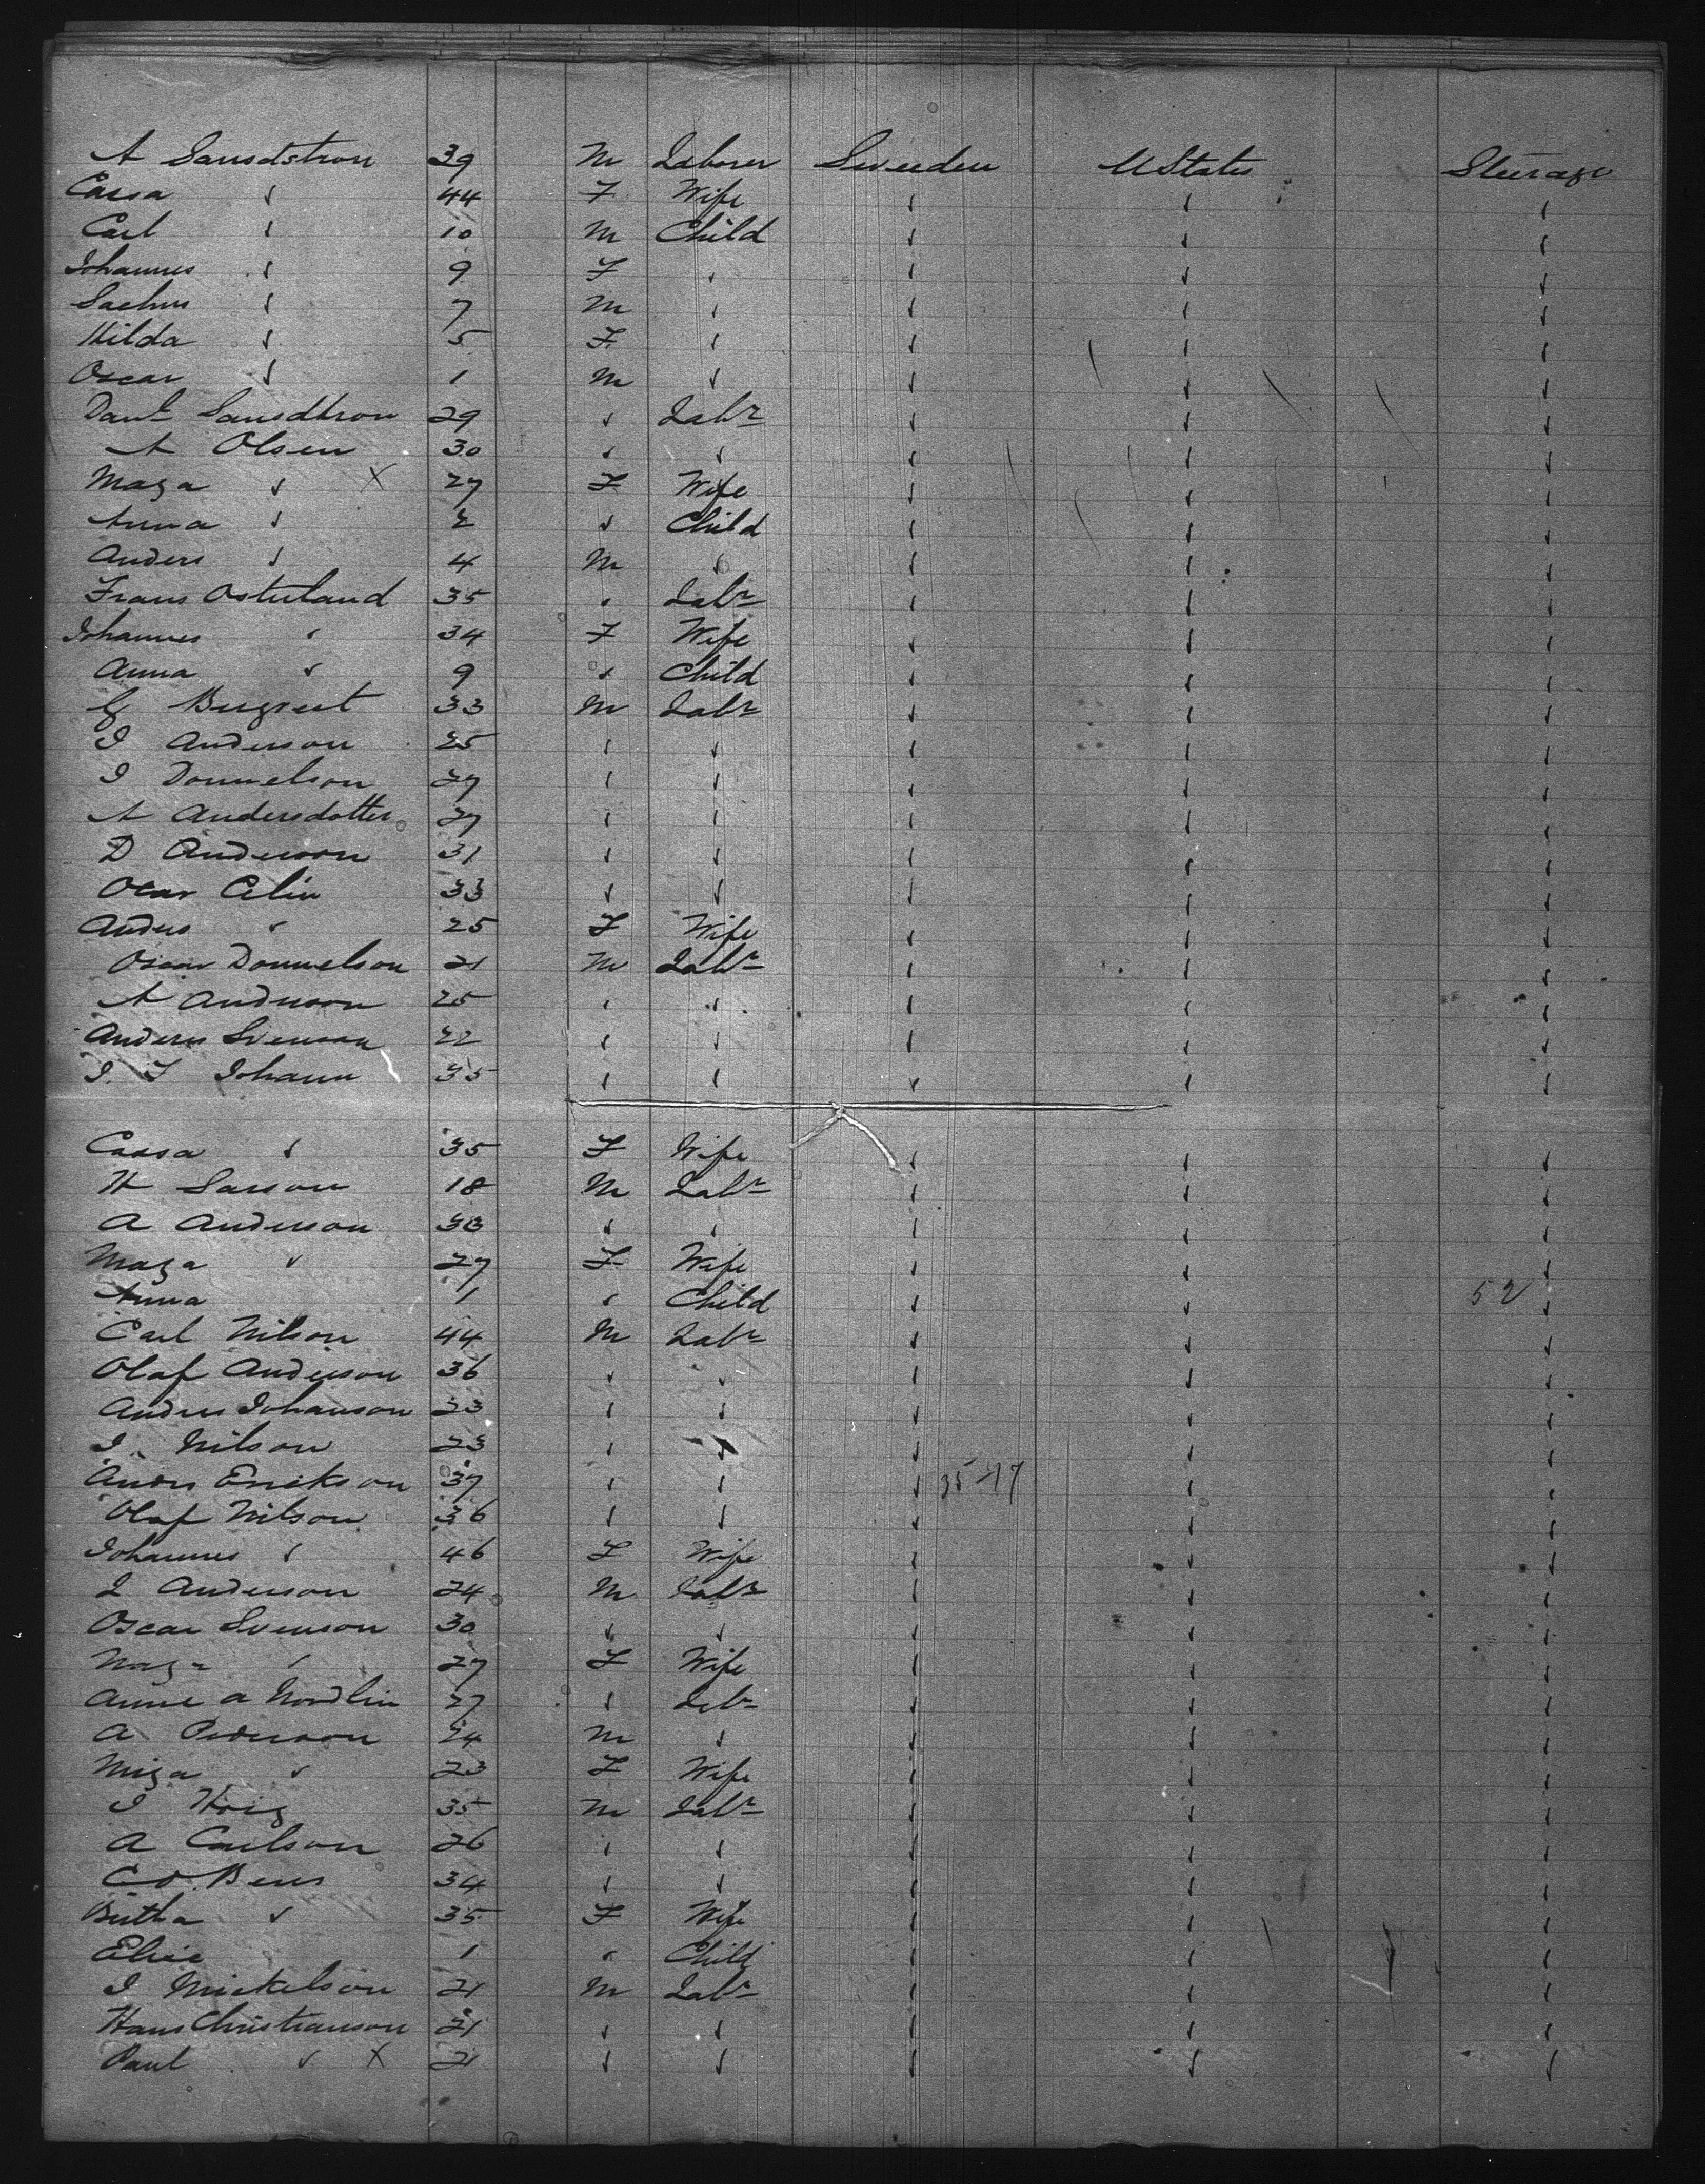 A Sansdstron 39 M Laborer Sweeden UStates Steerage
Cassa ✓ 44 F Wife ✓ ✓ ✓
Carl ✓ 10 M Child ✓ ✓ ✓
Johannes ✓ 9 F ✓ ✓ ✓ ✓
7 M ✓ ✓ ✓ ✓
Hilda ✓ 5 F ✓ ✓ ✓ ✓
Oscar ✓ 1 M ✓ ✓ ✓ ✓
Danl Sansdhron 29 ✓ Labr ✓ ✓ ✓
A Olsen 30 ✓ ✓ ✓ ✓ ✓
Maza ✓ X 27 F Wife ✓ ✓ ✓
Anna ✓ 2 ✓ Child ✓ ✓ ✓
Anders ✓ 4 M ✓ ✓ ✓ ✓
Frans Osterland 35 ✓ Labr ✓ ✓ ✓
Johannes ✓ 34 F Wife ✓ ✓ ✓
Anna ✓ 9 ✓ Child ✓ ✓ ✓
33 M Labr ✓ ✓ ✓
J Anderson 25 ✓ ✓ ✓ ✓ ✓
J Donnelson 27 ✓ ✓ ✓ ✓ ✓
A Andersdotter 27 ✓ ✓ ✓ ✓ ✓
D Anderson 31 ✓ ✓ ✓ ✓ ✓
Ocar Celin 33 ✓ ✓ ✓ ✓ ✓
Anders ✓ 25 F Wife ✓ ✓ ✓
Oscar Donnelson 21 M Labr ✓ ✓ ✓
A Anderson 25 ✓ ✓ ✓ ✓ ✓
Anders Svenson 22 ✓ ✓ ✓ ✓ ✓
J. F Johann 35 ✓ ✓ ✓ ✓ ✓
Cassa ✓ 35 F Wife ✓ ✓ ✓
H Larson 18 M Labr ✓ ✓ ✓
A Anderson 33 ✓ ✓ ✓ ✓ ✓
Maza ✓ 27 F Wife ✓ ✓ ✓
Anna 1 ✓ Child ✓ ✓ 52 ✓
Carl Nilson 44 M Labr ✓ ✓ ✓
Olaf Anderson 36 ✓ ✓ ✓ ✓ ✓
Andres Johanson 23 ✓ ✓ ✓ ✓ ✓
J. Nilson 23 ✓ ✓ ✓ ✓ ✓
Anders Erickson 37 ✓ ✓ ✓ 35-47 ✓ ✓
Olaf Nilson 36 ✓ ✓ ✓ ✓ ✓
Johannes ✓ 46 F Wife ✓ ✓ ✓
L Anderson 24 M Labr ✓ ✓ ✓
Oscar Svenson 30 ✓ ✓ ✓ ✓ ✓
Maza ✓ 27 F Wife ✓ ✓ ✓
Anne a Nordlin 27 ✓ Labr ✓ ✓ ✓
A Pederson 24 M ✓ ✓ ✓ ✓
Miza ✓ 23 F Wife ✓ ✓ ✓
J 35 M Labr ✓ ✓ ✓
A Carlson 26 ✓ ✓ ✓ ✓ ✓
34 ✓ ✓ ✓ ✓ ✓
Bertha ✓ 35 F Wife ✓ ✓ ✓
Elise 1 ✓ Child ✓ ✓ ✓
J Mickelson 21 M Labr ✓ ✓ ✓
Hans Christianson 21 ✓ ✓ ✓ ✓ ✓
Paul ✓ X 21 ✓ ✓ ✓ ✓ ✓